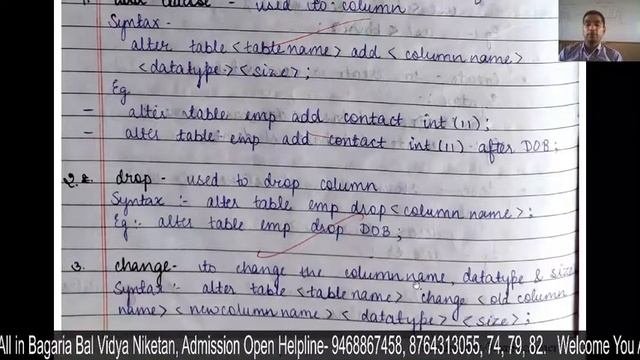 used to column
Syntax -
alter table <table name> add <column name>
<datatype> <size>;
Eg
- alter table emp add contact int(11);
- alter table emp add contact int(11) after DOB;
2. drop - used to drop column
Syntax :- alter table emp drop <column name>;
Eg :- alter table emp drop DOB;
3. change - to change the column name, datatype & size
Syntax :- alter table <table name> change <old column
name> <new column name> <datatype> <size>;
All in Bagaria Bal Vidya Niketan, Admission Open Helpline- 9468867458, 8764313055, 74, 79, 82. Welcome You A